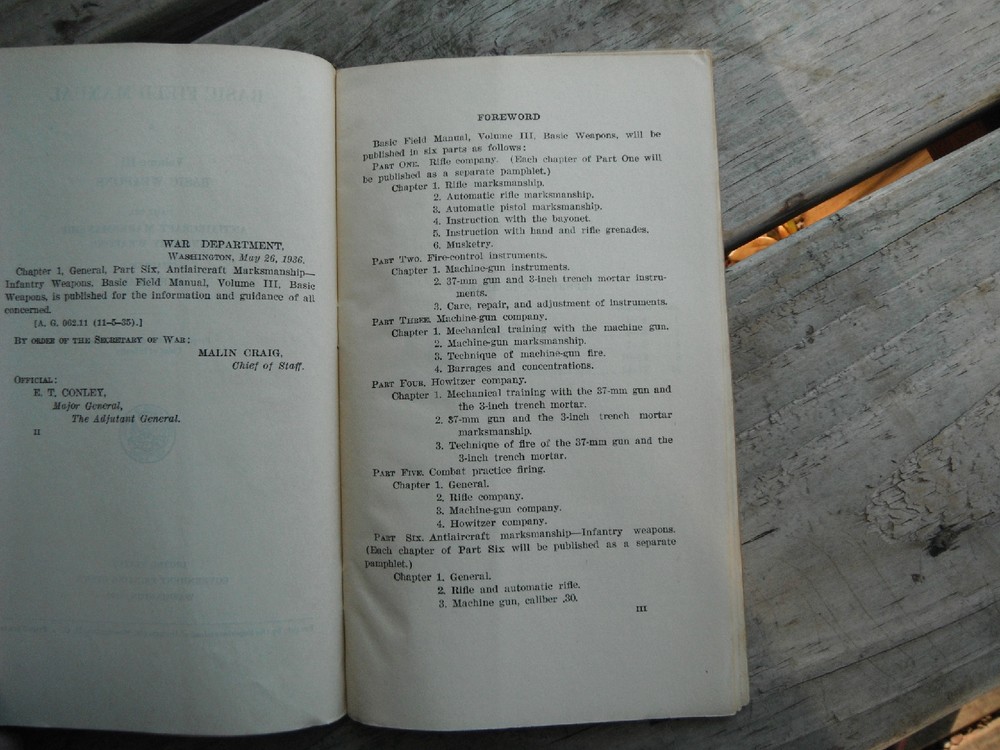 WAR DEPARTMENT,
WASHINGTON, May 26, 1936.
Chapter 1, General, Part Six, Antiaircraft Marksmanship—
Infantry Weapons, Basic Field Manual, Volume III, Basic
Weapons, is published for the information and guidance of all
concerned.
[A. G. 062.11 (11-5-35).]
BY ORDER OF THE SECRETARY OF WAR:
MALIN CRAIG,
Chief of Staff.
OFFICIAL:
E. T. CONLEY,
Major General,
The Adjutant General.
II
FOREWORD
Basic Field Manual, Volume III, Basic Weapons, will be
published in six parts as follows:
PART ONE. Rifle company. (Each chapter of Part One will
be published as a separate pamphlet.)
Chapter 1. Rifle marksmanship.
2. Automatic rifle marksmanship.
3. Automatic pistol marksmanship.
4. Instruction with the bayonet.
5. Instruction with hand and rifle grenades.
6. Musketry.
PART TWO. Fire-control instruments.
Chapter 1. Machine-gun instruments.
2. 37-mm gun and 3-inch trench mortar instru-
ments.
3. Care, repair, and adjustment of instruments.
PART THREE. Machine-gun company.
Chapter 1. Mechanical training with the machine gun.
2. Machine-gun marksmanship.
3. Technique of machine-gun fire.
4. Barrages and concentrations.
PART FOUR. Howitzer company.
Chapter 1. Mechanical training with the 37-mm gun and
the 3-inch trench mortar.
2. 37-mm gun and the 3-inch trench mortar
marksmanship.
3. Technique of fire of the 37-mm gun and the
3-inch trench mortar.
PART FIVE. Combat practice firing.
Chapter 1. General.
2. Rifle company.
3. Machine-gun company.
4. Howitzer company.
PART SIX. Antiaircraft marksmanship—Infantry weapons.
(Each chapter of Part Six will be published as a separate
pamphlet.)
Chapter 1. General.
2. Rifle and automatic rifle.
3. Machine gun, caliber .30.
III